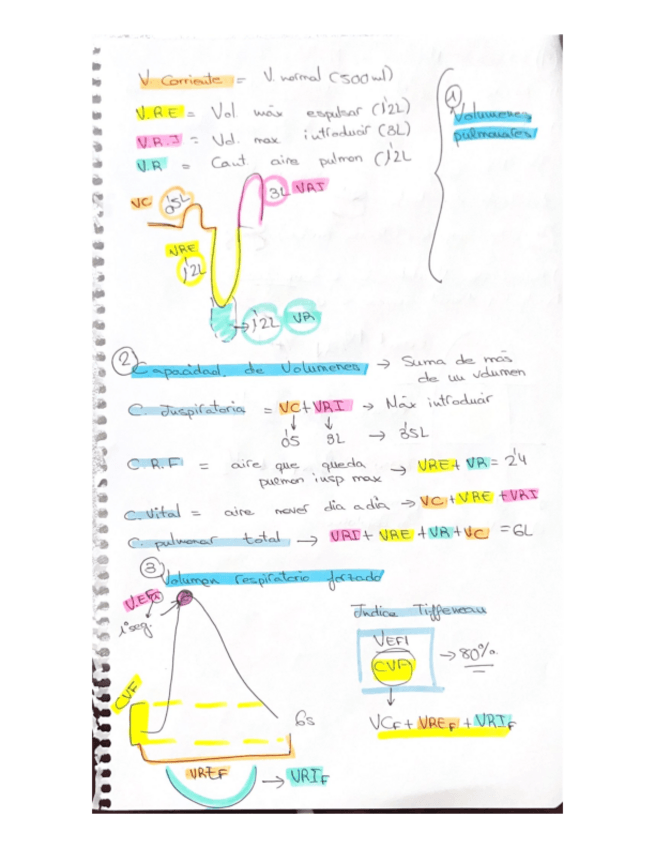 V. Corriente = V. normal (500ml)
V.R.E = Vol máx espulsar (1'2L)
V.R.I = Vol. max introducir (3L)
V.R = Cant. aire pulmon (1'2L
① Volumenes
pulmonares
VC 0'5L
3L VRI
VRE
1'2L
→ 1'2L VR
② Capacidad de Volumenes → Suma de más
de un volumen
C. Inspiratoria = VC+VRI → Máx introducir
↓ ↓
0'5 3L → 3'5L
C.R.F = aire que queda
pulmon insp max → VRE+VR = 2'4
C. Vital = aire mover dia a dia → VC+VRE+VRI
C. pulmonar total → VRI+VRE+VR+VC = 6L
③ Volumen respiratorio forzado
V.EF1
1ºseg.
CVF
6s
VREF
→ VRIF
Indice Tiffeneau
VEF1
CVF
→ 80%
↓
VCF + VREF + VRIF